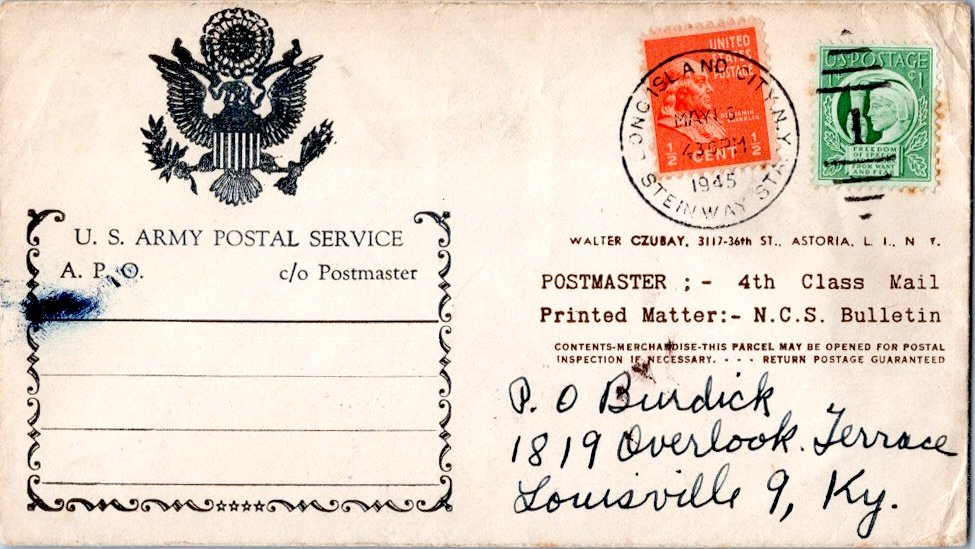 U. S. ARMY POSTAL SERVICE
A. P. O.
c/o Postmaster
UNITED
STATES
POSTAGE
BENJAMIN
FRANKLIN
1/2 CENT 1/2
LONG ISLAND CITY, N.Y.
MAY
PM
1945
STEINWAY STA.
U.S. POSTAGE
1¢
FREEDOM
OF SPEECH
FROM WANT
AND FEAR
WALTER CZUBAY, 3117-36th ST., ASTORIA, L. I., N Y.
POSTMASTER ;- 4th Class Mail
Printed Matter:- N.C.S. Bulletin
CONTENTS-MERCHANDISE-THIS PARCEL MAY BE OPENED FOR POSTAL
INSPECTION IF NECESSARY. - - - RETURN POSTAGE GUARANTEED
P. O Burdick
1819 Overlook Terrace
Louisville 9, Ky.